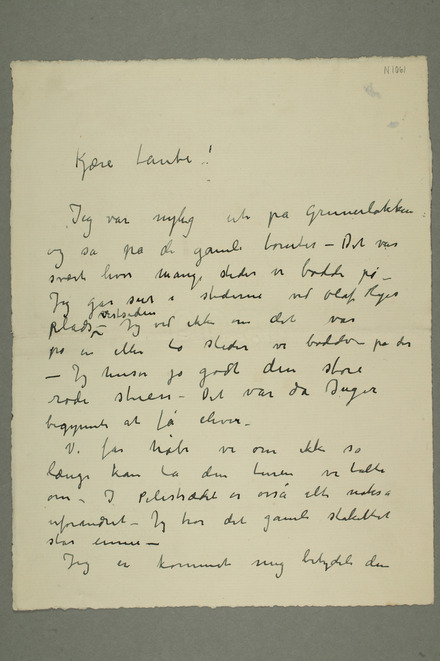 N 1061
Kjære Tante!
Jeg var nylig ute på Grünerløkken
og så på de gamle tomter – Det var
svært hvor mange steder vi bodde på –
Jeg gås sur i stederne ved Olaf Ryes
Plads – vestsiden Jeg ved ikke om det var
på en eller to steder vi bodde på der
– Jeg husker jo godt den store
røde stuen – Det var da Inger
begynte at få elever –
Vi får håbe vi om ikke så
længe kan ta den turen vi talte
om – I Pilestrædet er også alt
uforandret – Jeg tror det gamle stakittet
står ennu –
Jeg er kommet mig betydelig